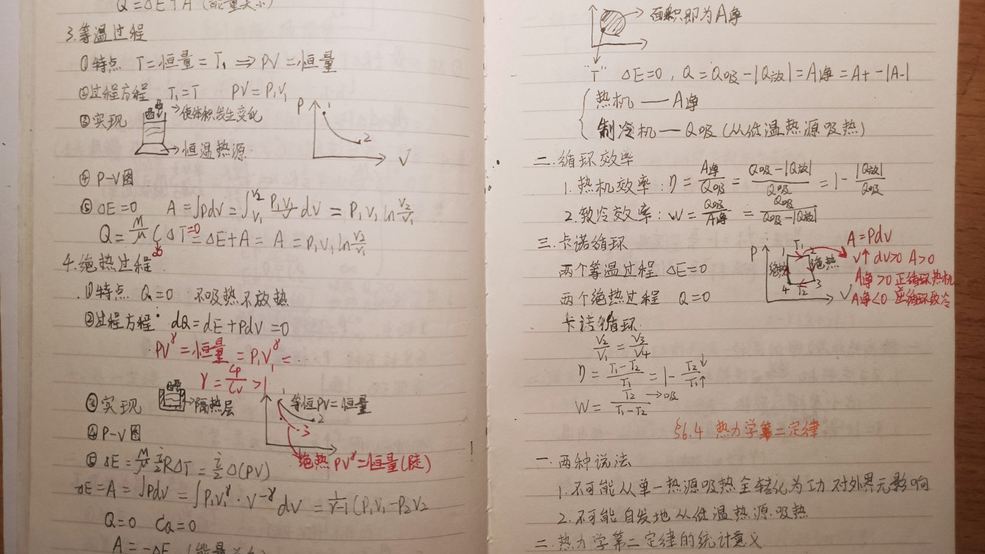 Q=ΔE+A (能量关系)
3.等温过程
①特点 T=恒量=T₁ ⇒ PV=恒量
②过程方程 T₁=T PV=P₁V₁
③实现 →使体积发生变化
→恒温热源
P 1 2 V
④P-V图
⑤ΔE=0 A=∫PdV=∫_{V₁}^{V₂} P₁V₁/V dV = P₁V₁ ln V₂/V₁
Q= M/μ C ΔT=0 =ΔE+A= A = P₁V₁ ln V₂/V₁
∞
4.绝热过程
①特点 Q=0 不吸热不放热
②过程方程: dQ=dE+PdV=0
PV^γ=恒量=P₁V₁^γ=
γ= Cp/Cv >1
③实现 →隔热层
1 等温PV=恒量
2
3
④P-V图
绝热PV^γ=恒量(陡)
⑤ΔE= M/μ i/2 RΔT= i/2 Δ(PV)
ΔE=A=∫PdV=∫P₁V₁^γ·V^{-γ}dV= 1/(γ-1) (P₁V₁-P₂V₂
Q=0 C_Q=0
A=-ΔE
→面积即为A净
"T" ΔE=0, Q=Q吸-|Q放|=A净=A+-|A-|
热机——A净
制冷机—Q吸(从低温热源吸热)
二.循环效率
1.热机效率:η= A净/Q吸 = (Q吸-|Q放|)/Q吸 =1- |Q放|/Q吸
2.致冷效率:W= Q吸/A净 = Q吸/(Q吸-|Q放|)
三.卡诺循环
两个等温过程 ΔE=0
两个绝热过程 Q=0
P 1 T₁ 绝热 绝热 4 T₂ 3 V
A=PdV
V↑ dV>0 A>0
A净>0 正循环热机
A净<0 逆循环致冷
卡诺循环
V₂/V₁ = V₃/V₄
η= (T₁-T₂)/T₁ =1- T₂↓/T₁↑
W= T₂/(T₁-T₂) →吸
§6.4 热力学第二定律
一.两种说法
1.不可能从单一热源吸热全转化为功对外界无影响
2.不可能自发地从低温热源吸热
二.热力学第二定律的统计意义